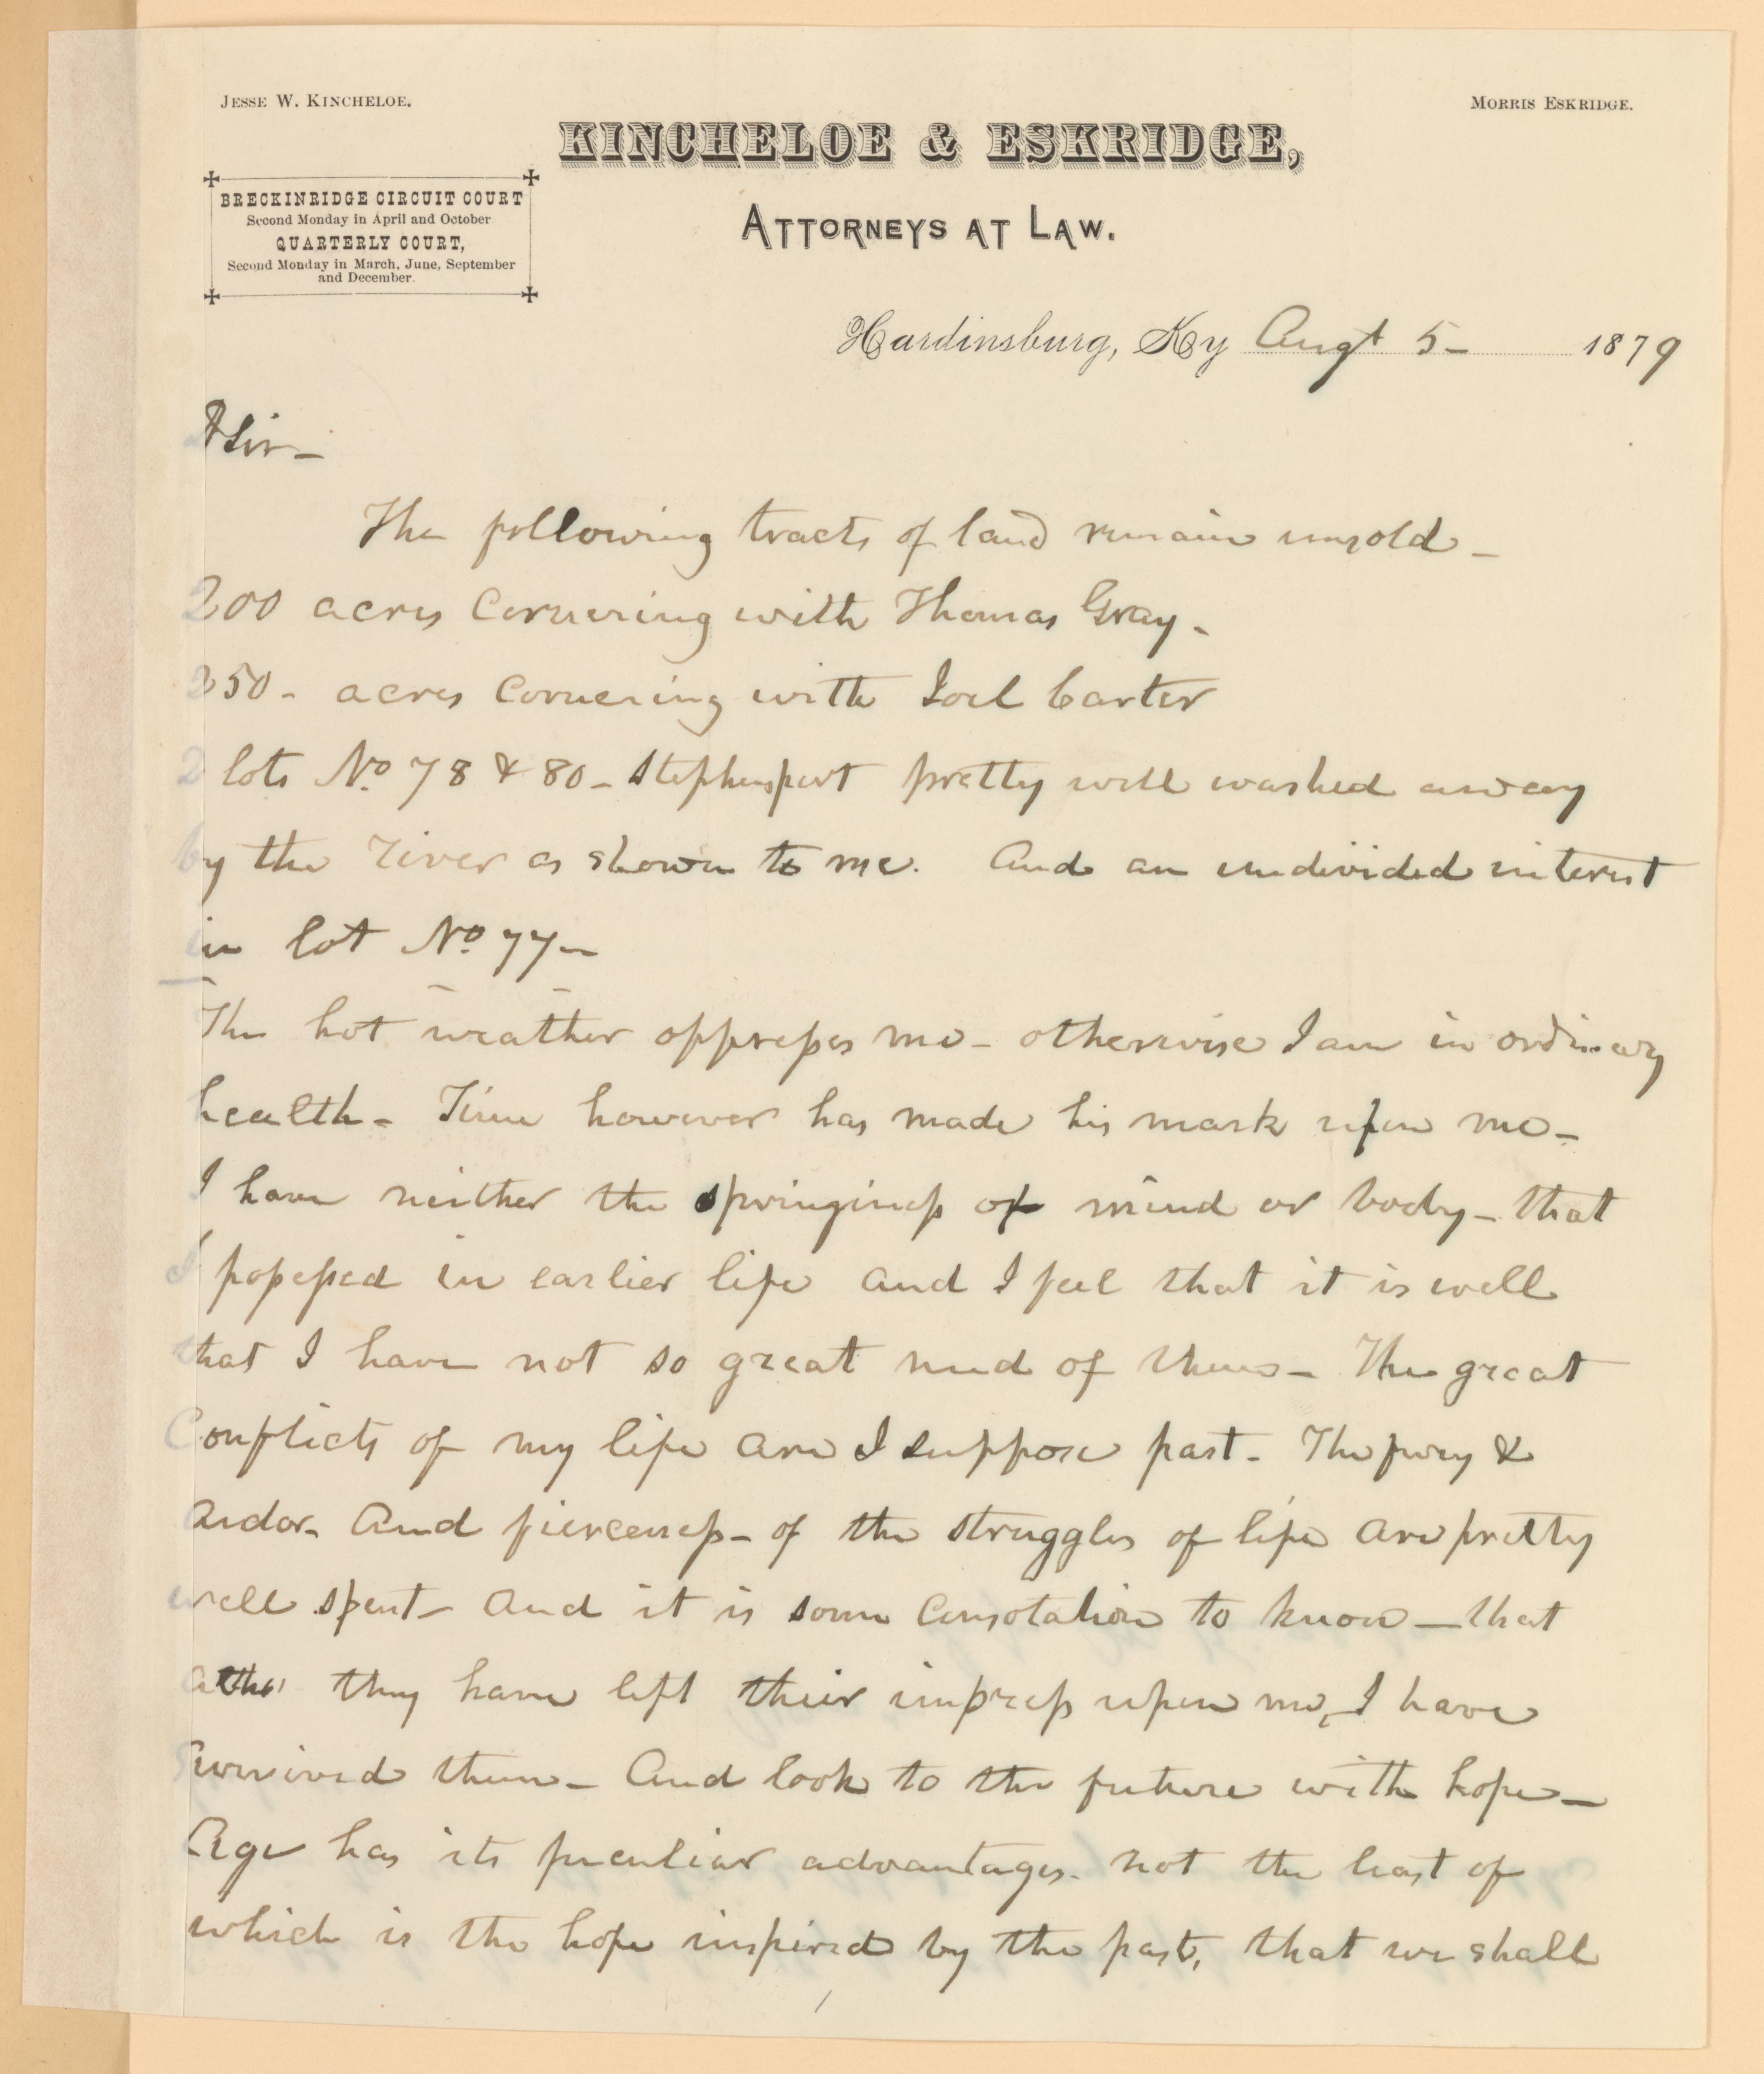 JESSE W. KINCHELOE.
MORRIS ESKRIDGE.
KINCHELOE & ESKRIDGE,
ATTORNEYS AT LAW.
BRECKINRIDGE CIRCUIT COURT
Second Monday in April and October
QUARTERLY COURT,
Second Monday in March, June, September
and December.
Hardinsburg, Ky Augt 5- 1879
Sir-
The following tracts of land remain unsold-
200 acres cornering with Thomas Gray-
250- acres cornering with Joel Carter
2 lots No. 78 & 80- Stephensport pretty well washed away
by the river as shown to me. And an undivided interest
in lot No. 77-
The hot weather oppresses me- otherwise I am in ordinary
health- Time however has made his mark upon me-
I have neither the springiness of mind or body- that
I possessed in earlier life and I feel that it is well
that I have not so great need of them- The great
Conflicts of my life are I suppose past- The fury &
ardor- And fierceness- of the struggles of life are pretty
well spent- And it is some consolation to know- that
altho' they have left their impress upon me, I have
survived them- And look to the future with hope-
Age has its peculiar advantages- not the least of
which is the hope inspired by the past, that we shall